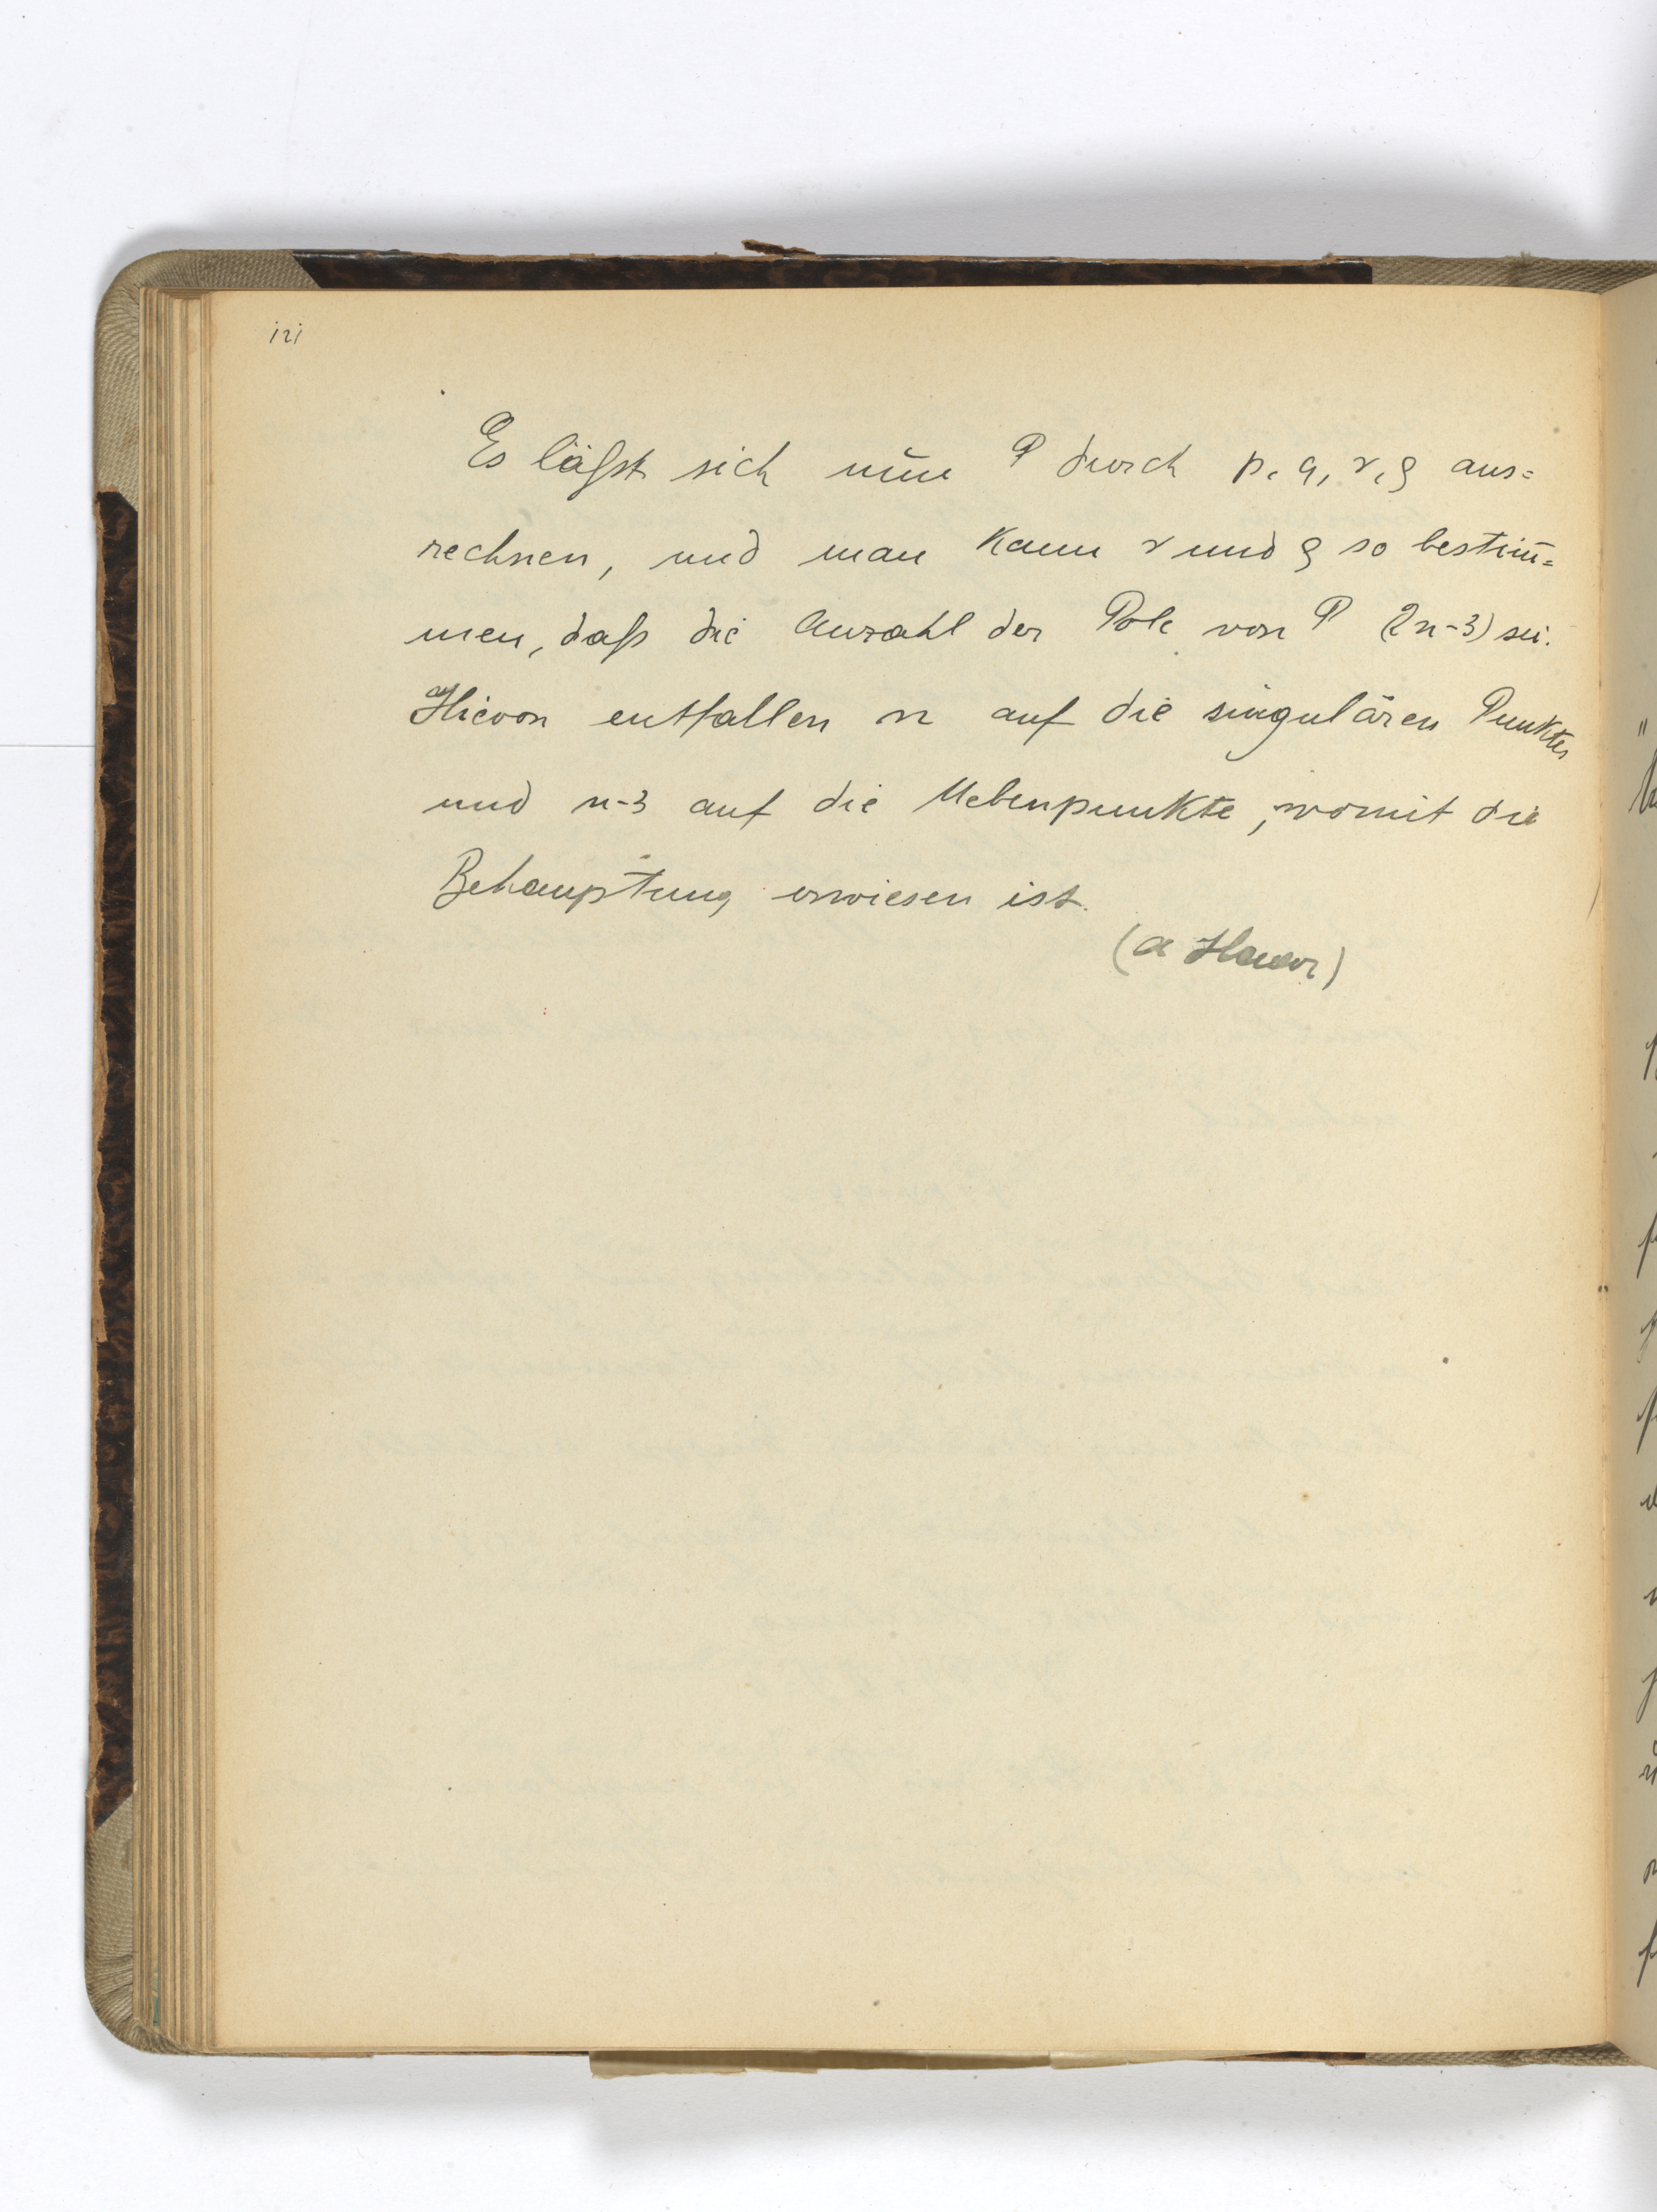 121
Es läßt sich nun P durch p, q, r, ϱ aus=
rechnen, und man kann r und ϱ so bestim̄=
men, daß die Anzahl der Pole von P (2n-3) sei.
Hievon entfallen n auf die singulären Punkte,
und n-3 auf die Nebenpunkte, womit die
Behauptung erwiesen ist.
(A Haar)